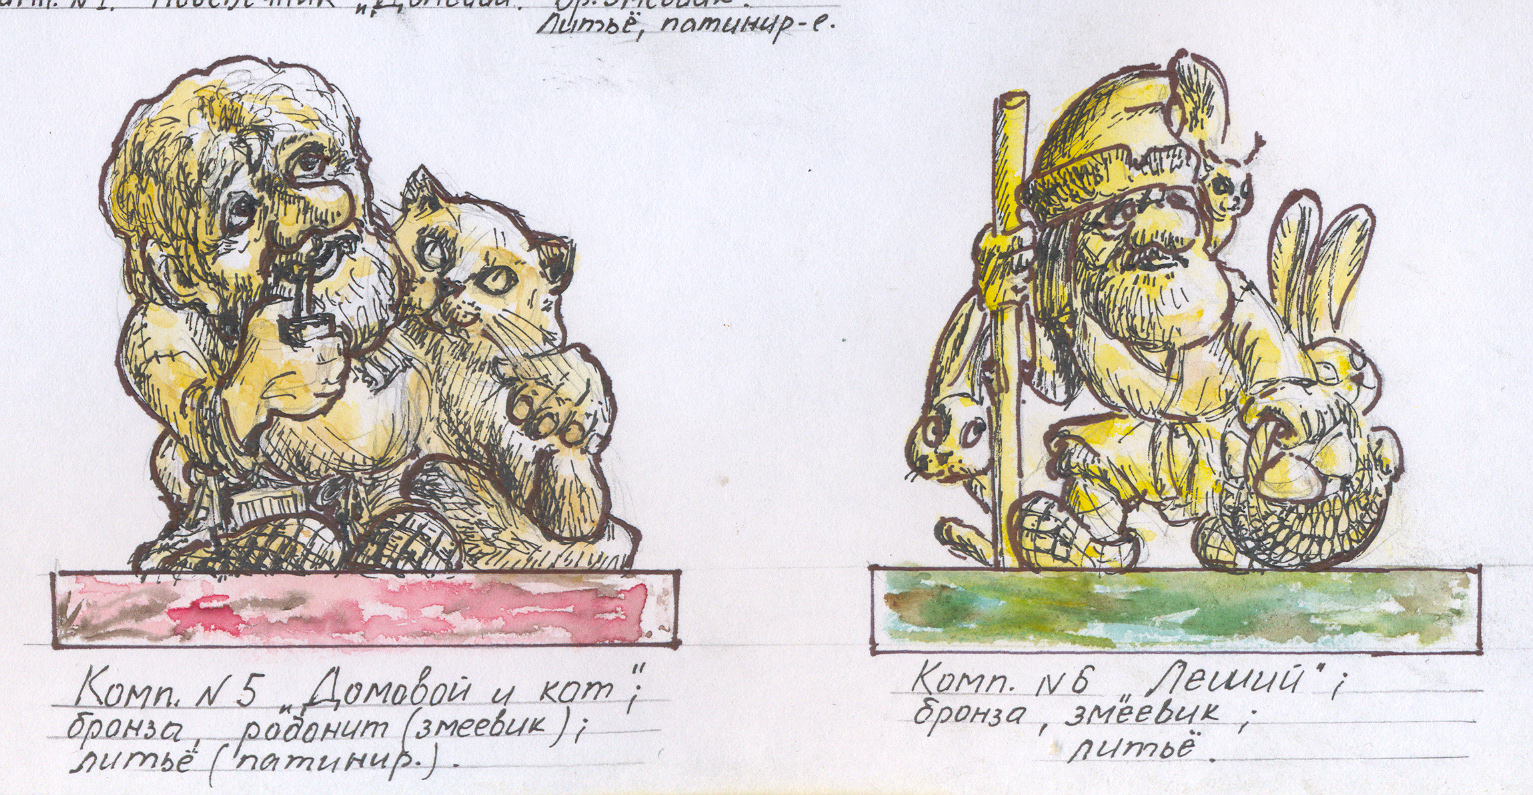 N1. Подсвечник „Домовой.
Литьё, патинир-е.
Комп. N 5 „Домовой и кот";
бронза, родонит (змеевик);
литьё (патинир.).
Комп. N 6 „Леший";
бронза, змеевик;
литьё.